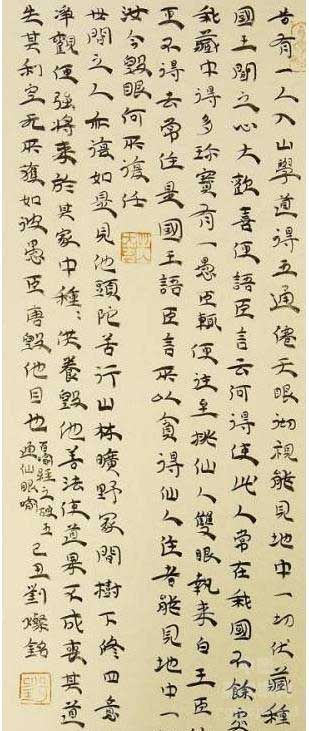 昔有一人入山學道得五通僊天眼徹視能見地中一切伏藏種
國王聞之心大歡喜便語臣言云何得使此人常在我國不餘處
我藏中得多珍寶有一愚臣輒便往至挑仙人雙眼執來白王臣
更不得去常住是國王語臣言所以貪得仙人住者能見地中一
汝今毀眼何所復任
世間之人亦復如是見他頭陀苦行山林曠野冢間樹下修四意
淨觀便強將來於其家中種種供養毀他善法使道果不成喪其道
失其利空无所獲如彼愚臣唐毀他目也
百喻經之破五
通仙眼喻
己丑劉燦銘